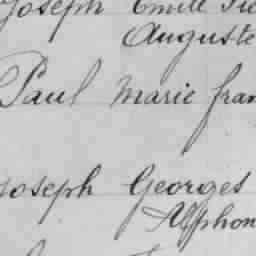 Joseph Emile
Auguste
Paul Marie fran
Joseph Georges
Alphon